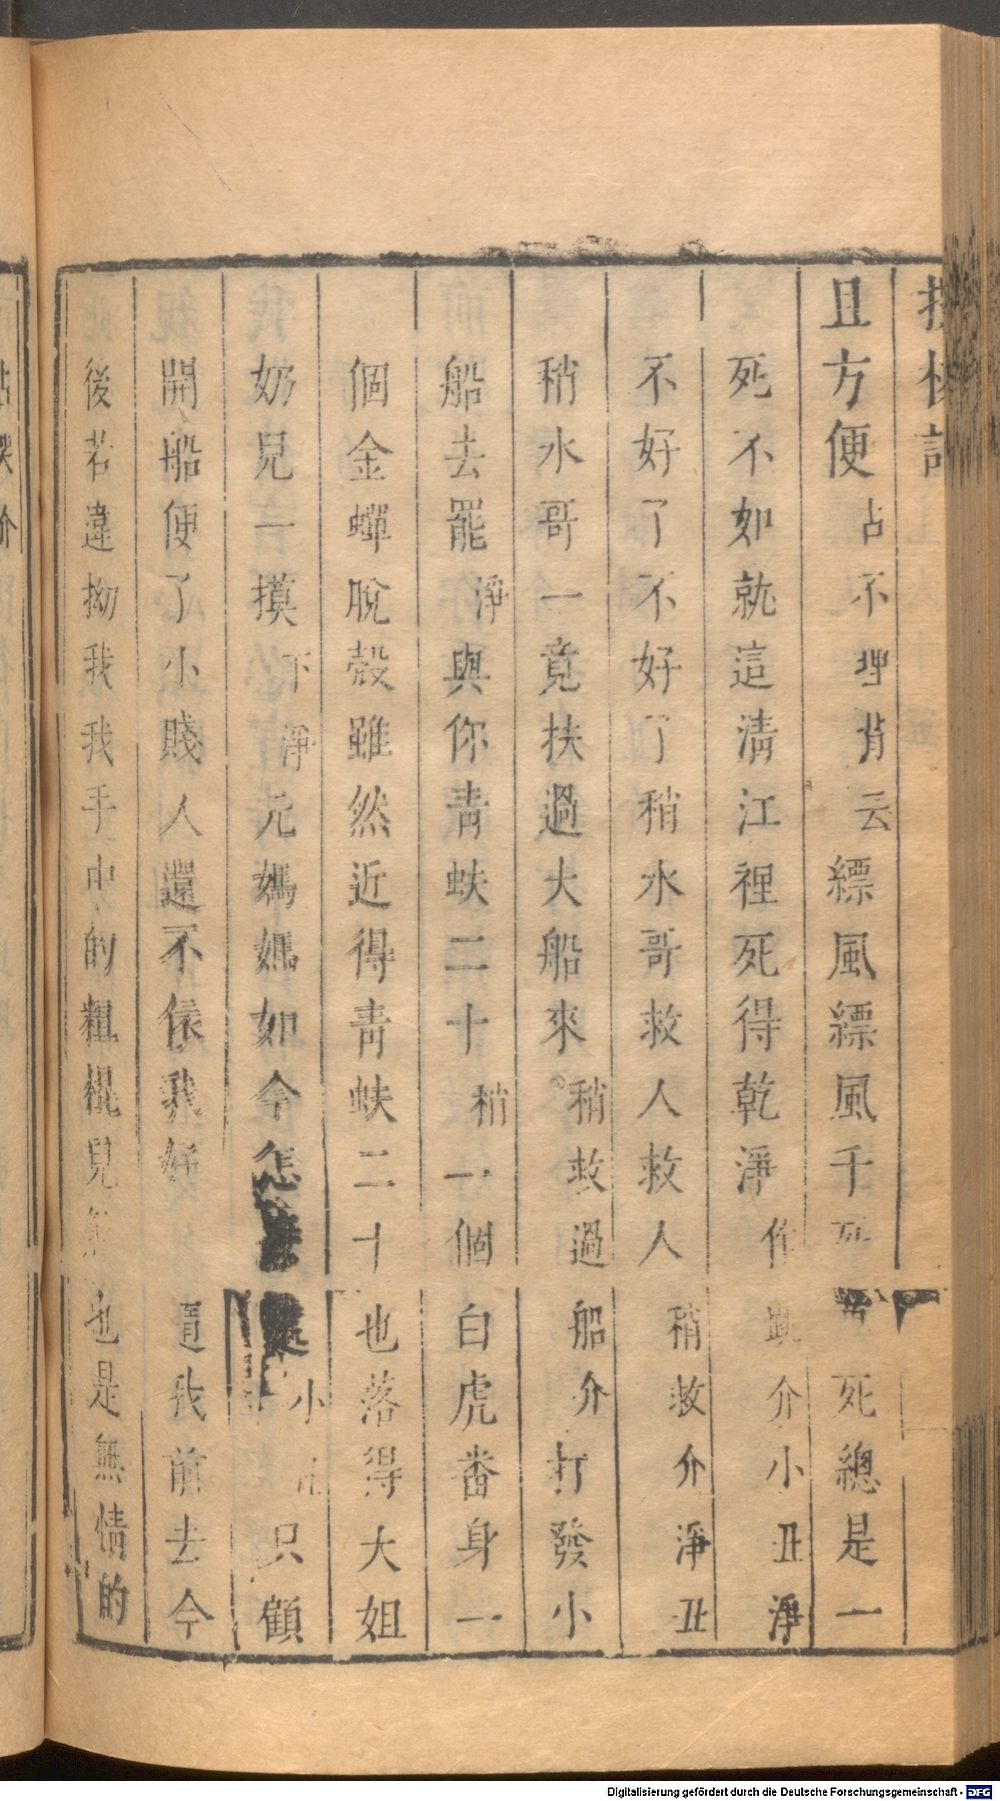 且方便占不理背云縹風縹風千死萬死總是一
死不如就這清江裡死得乾淨作跳介小丑淨
不好了不好了稍水哥救人救人稍救介淨丑
稍水哥一竟扶過大船來稍救過船介打發小
船去罷淨與你青蚨二十稍一個白虎番身一
個金蟬脫殼雖然近得青蚨二十也落得大姐
奶兒一摸下淨元媽媽如今怎小只顧
開船便了小賤人還不依我好我前去今
後若違拗我我手中的粗棍兒也是無情的
Digitalisierung gefördert durch die Deutsche Forschungsgemeinschaft - DFG